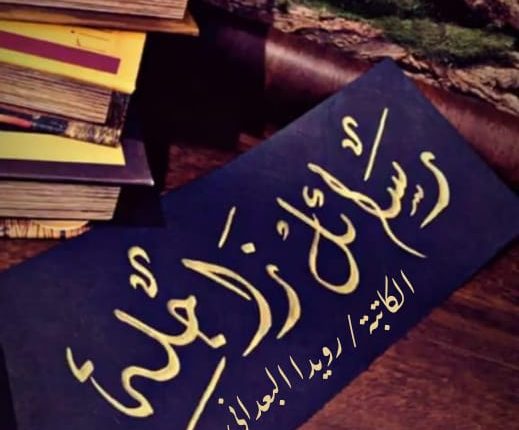 رسائل زاجلة
الكاتبة / رويدا البعداني